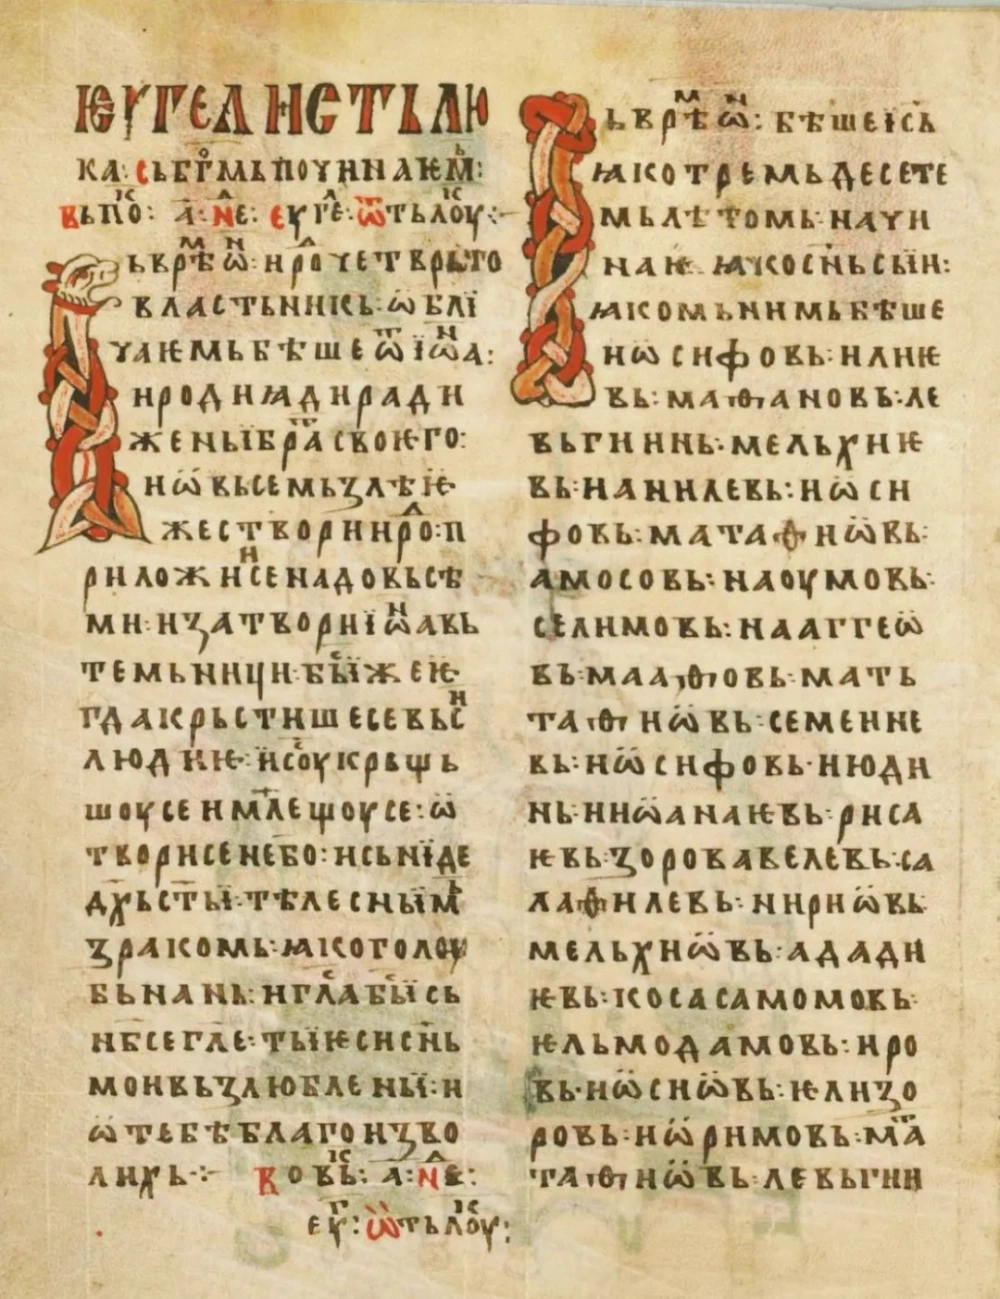 ѤУГЕЛИСТЬ ЛꙊ
КА: СЬ БГ҃МЬ ПОЧИНАѤМ:
ВЬ ПОⷦ: А҃: НеⷧЕ: ЕУГЕⷧ: Ѿ ТЬ ЛОⷦУ:
Ь ВРѢⷨ Ѡⷩ: ИРОⷧ ЧЕТВРЬТО
ВЛАСТЬНИКЬ: ѠБЛЇ
ЧАѤМЬ БѢШЕ Ѿ ЇѠⷩА:
ИРОДИꙖДИ РАДИ
ЖЕНЫЇ БРⷮА СВОѤГО:
И Ѡ ВЬСЕМЬ ЗЛѢ Ѥ
ЖЕ СТВОРИ ИРОⷧ: П
РИЛОЖИ СЕ НАДО ВЬСѢ
МИ: И ЗАТВОРИ ЇѠⷩА ВЬ
ТЕМЬНИЦИ: БЫЇ ЖЕ Ѥ
ГДА КРЬСТИШЕ СЕ ВЬСⷩ
ЛЮДИѤ: И ІС҃ОУ КРЬЩЬ
ШОУ СЕ И МЛЕЩОУ СЕ: Ѡ
ТВОРИ СЕ НЕБО: И СЬНЇДЕ
ДХ҃Ь СТ҃ЫЇ: ТѢЛЕСНЫЇМ
ЗРАКОМЬ: ꙖКО ГОЛОУ
БЬ НА НЬ: И ГЛⷭА БЫⷭЇ СЬ
НБ҃СЕ ГЛЕ: ТЫЇ ѤСИ СН҃Ь
МОИ ВЬЗЛЮБЛЕНЫЇ: И
Ѡ ТЕБѢ БЛАГОИЗВО
ЛИХЬ: В ОВⷦЬ: А: НеⷧЕ:
ЕУⷢ: Ѿ ТЬ ЛОⷦУ:
Ь ВРѢⷨ Ѡⷩ: БѢШЕ ІСЬ
ꙖКО ТРЕМЬ ДЕСЕТЕ
МЬ ЛѢТОМЬ: НАЧИ
НАѤ: ꙖКО СН҃Ь СЫЇН:
ꙖКО МЬНИМЬ БѢШЕ
ИѠСИФОВЬ: ИЛИѤ
ВЬ: МАѲАНОВЬ: ЛЕ
ВЬГИИНЬ: МЕЛЬХИѤ
ВЬ: НАНИЛЕВЬ: ИѠСИ
ФОВЬ: МАТАѲИѠВЬ:
АМОСОВЬ: НАОУМОВЬ:
СЕЛИМОВЬ: НААГГЕѠ
ВЬ: МААѲОВЬ: МАТЬ
ТАѲИѠВЬ: СЕМЕИНЕ
ВЬ: ИѠСИФОВЬ: ИЮДИ
НЬ: ИИѠАНАѤВЬ: РИСА
ѤВЬ: ЗОРОВАВЕЛЕВЬ: СА
ЛАѲИЛЕВЬ: НИРИѠВЬ:
МЕЛЬХИѠВЬ: АДАДИ
ѤВЬ: КОСАСАМОМОВЬ:
ѤЛЬМОДАМОВЬ: ИРО
ВЬ: ИѠСИѠВЬ: ѤЛИЗО
РОВЬ: ИѠРИМОВЬ: МАⷮ
ТАѲИѠВЬ: ЛЕВЬГИИ